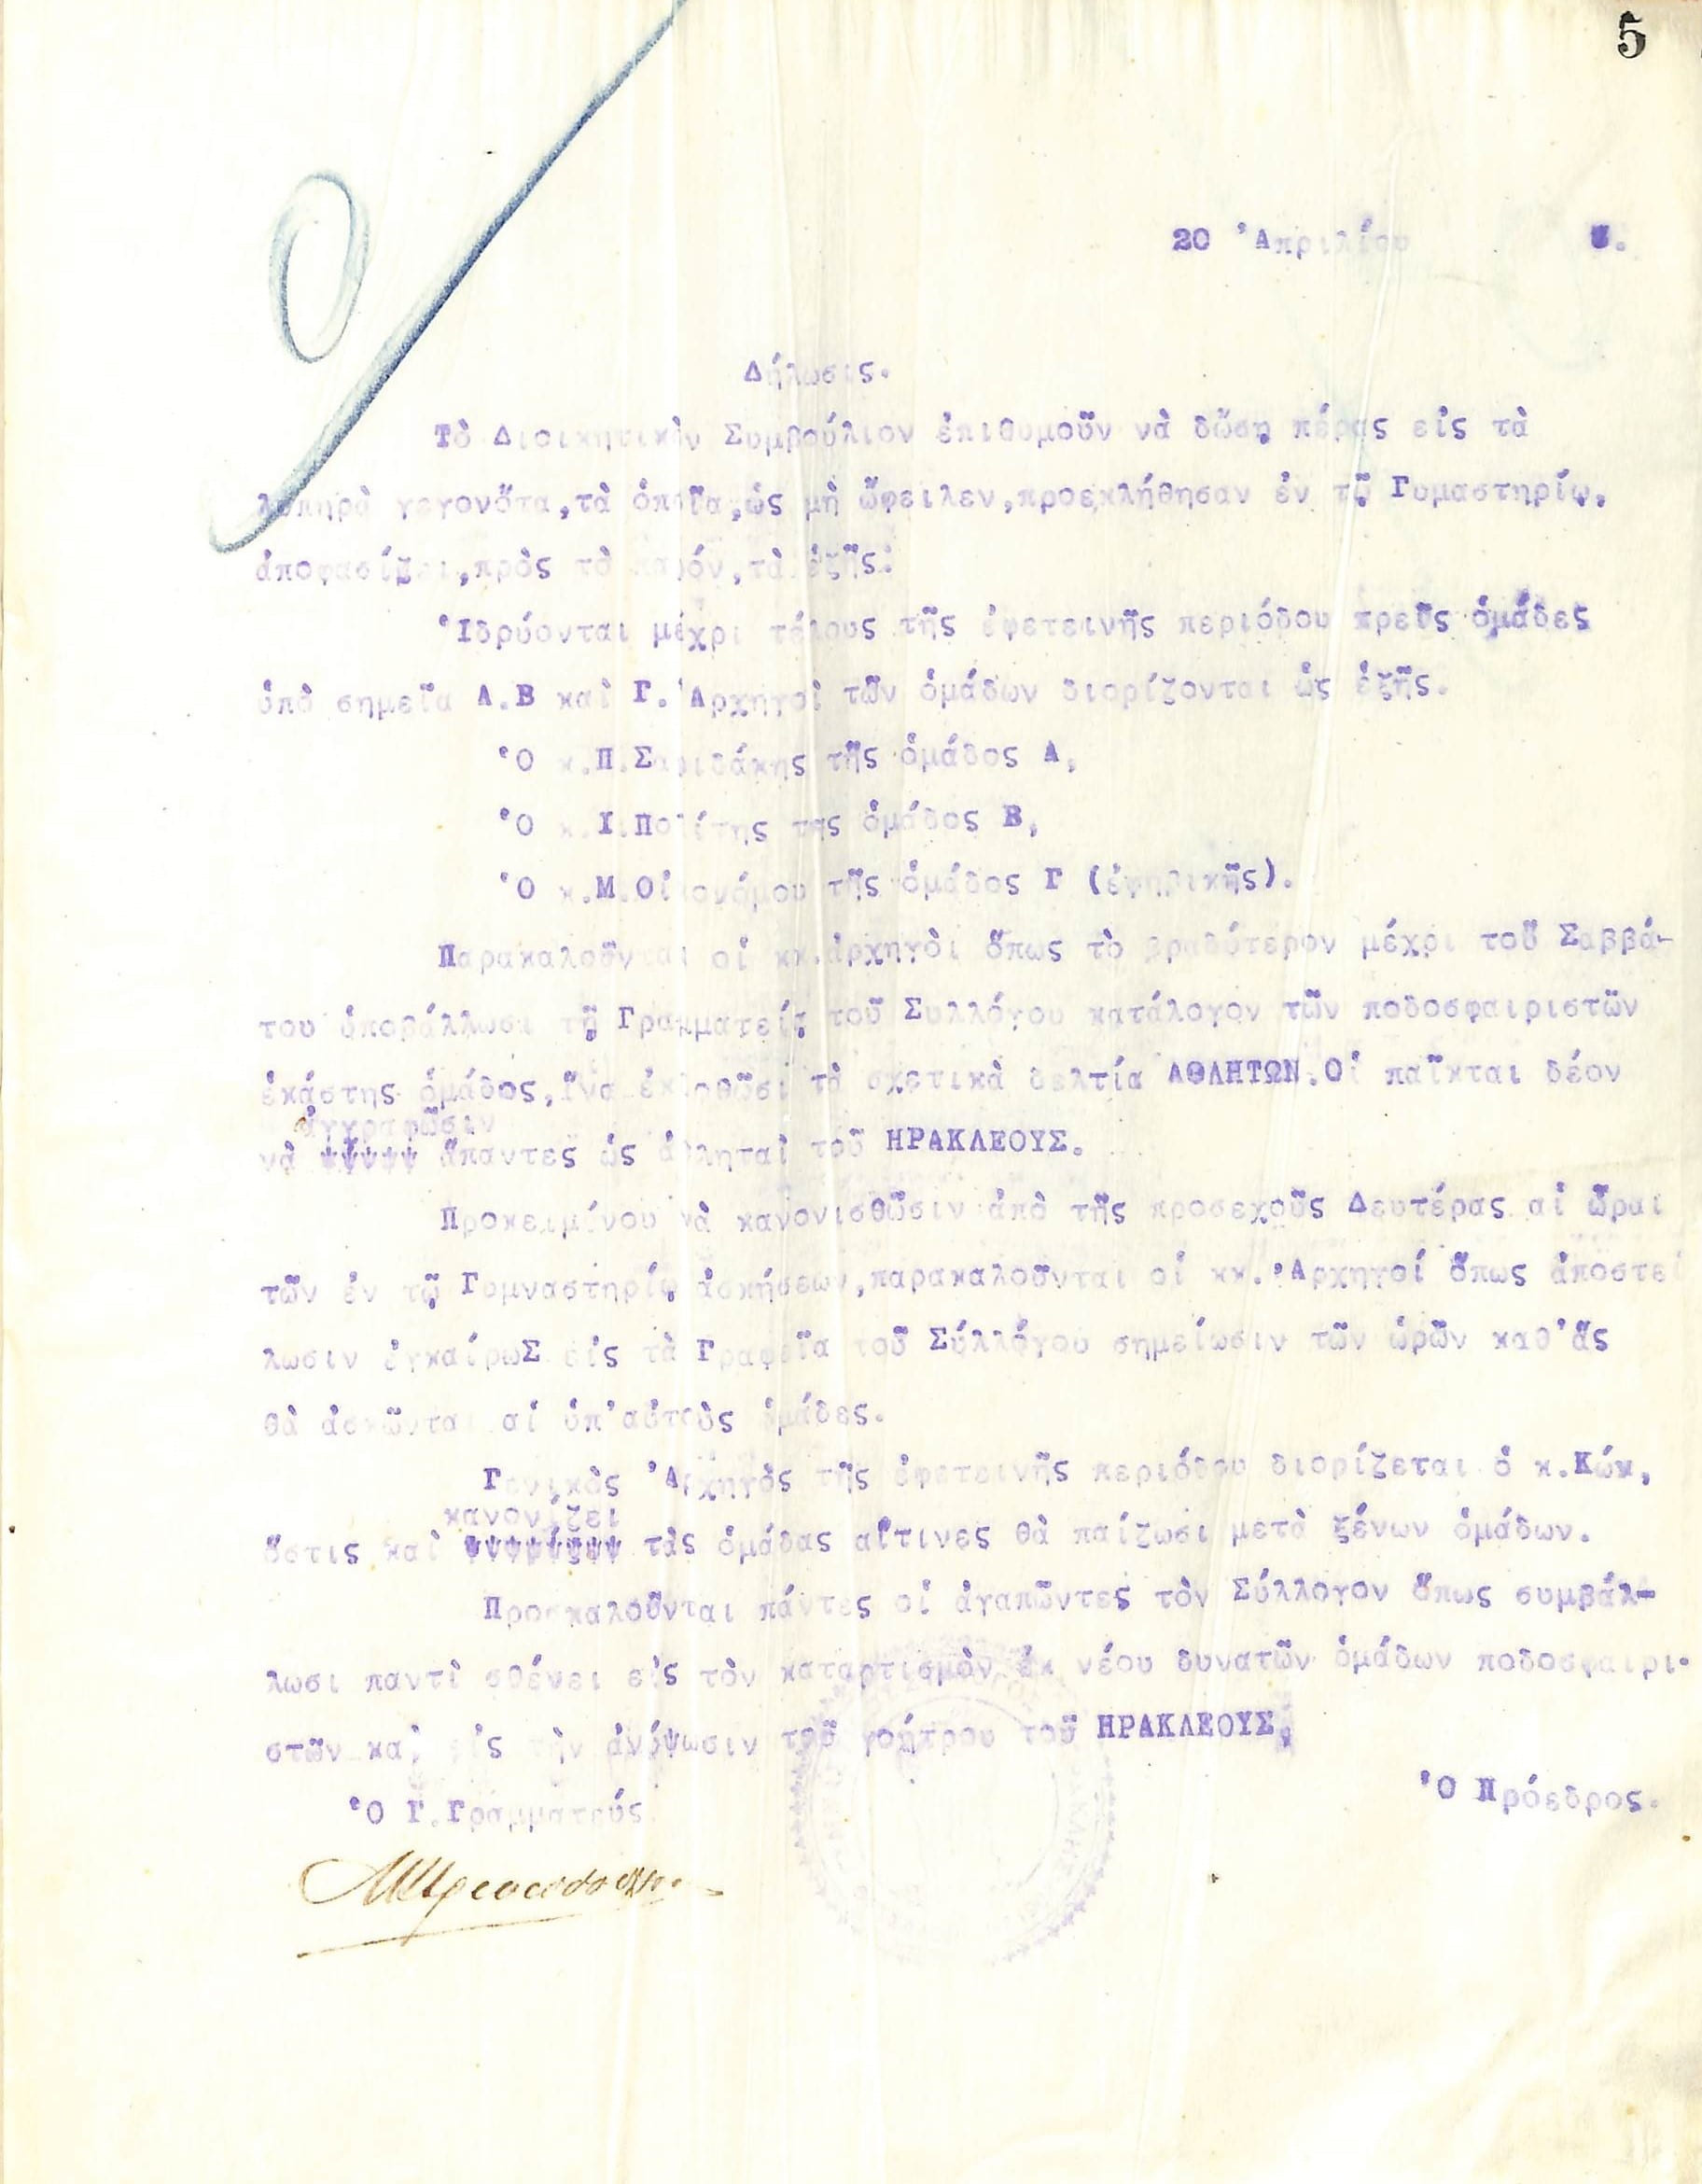 5
20 Ἀπριλίου
Δήλωσις.
Τὸ Διοικητικὸν Συμβούλιον ἐπιθυμοῦν νὰ δώσῃ πέρας εἰς τὰ
λυπηρὰ γεγονότα,τὰ ὁποῖα,ὡς μὴ ὤφειλεν,προεκλήθησαν ἐν τῷ Γυμαστηρίῳ,
ἀποφασίζει,πρὸς τὸ παρόν,τὰ ἑξῆς:
Ἱδρύονται μέχρι τέλους τῆς ἐφετεινῆς περιόδου τρεῖς ὁμάδες
ὑπὸ σημεῖα Α.Β καὶ Γ. Ἀρχηγοὶ τῶν ὁμάδων διορίζονται ὡς ἑξῆς.
Ὁ κ.Π.Σαριδάκης τῆς ὁμάδος Α,
Ὁ κ.Ι.Πολίτης της ὁμάδος Β,
Ὁ κ.Μ.Οἰκονόμου τῆς ὁμάδος Γ (ἐφηβικῆς).
Παρακαλοῦνται οἱ κκ.ἀρχηγὸι ὅπως τὸ βραδύτερον μέχρι τοῦ Σαββά-
του ὑποβάλλωσι τῇ Γραμματείᾳ τοῦ Συλλόγου κατάλογον τῶν ποδοσφαιριστῶν
ἑκάστης ὁμάδος,ἵνα ἐκδοθῶσι τὰ σχετικὰ δελτία ΑΘΛΗΤΩΝ.Οἱ παῖκται δέον
ἀγγραφῶσιν
νὰ ἅπαντες ὡς ἀθληταὶ τοῦ ΗΡΑΚΛΕΟΥΣ.
Προκειμένου νὰ κανονισθῶσιν ἀπὸ τῆς προσεχοῦς Δευτέρας αἱ ὧραι
τῶν ἐν τῷ Γυμναστηρίῳ ἀσκήσεων,παρακαλοῦνται οἱ κκ.Ἀρχηγοί ὅπως ἀποστεί
λωσιν ἐγκαίρωΣ εἰς τὰ Γραφεῖα τοῦ Σύλλόγου σημείωσιν τῶν ὡρῶν καθ'ἃς
θὰ ἀσκῶνται αἱ ὑπ'αὐτοὺς ὁμάδες.
Γενικὸς Ἀρχηγὸς τῆς ἐφετεινῆς περιόδου διορίζεται ὁ κ.Κώκ,
κανονίζει
ὅστις καὶ τὰς ὁμάδας αἵτινες θὰ παίζωσι μετὰ ξένων ὁμάδων.
Προσκαλοῦνται πάντες οἱ ἀγαπῶντες τὸν Σύλλογον ὅπως συμβάλ-
λωσι παντὶ σθένει εἰς τὸν καταρτισμὸν ἐκ νέου δυνατῶν ὁμάδων ποδοσφαιρι-
στῶν καὶ εἰς τὴν ἀνύψωσιν τοῦ γοήτρου τοῦ ΗΡΑΚΛΕΟΥΣ.
Ὁ Γ.Γραμματεύς
Ὁ Πρόεδρος.